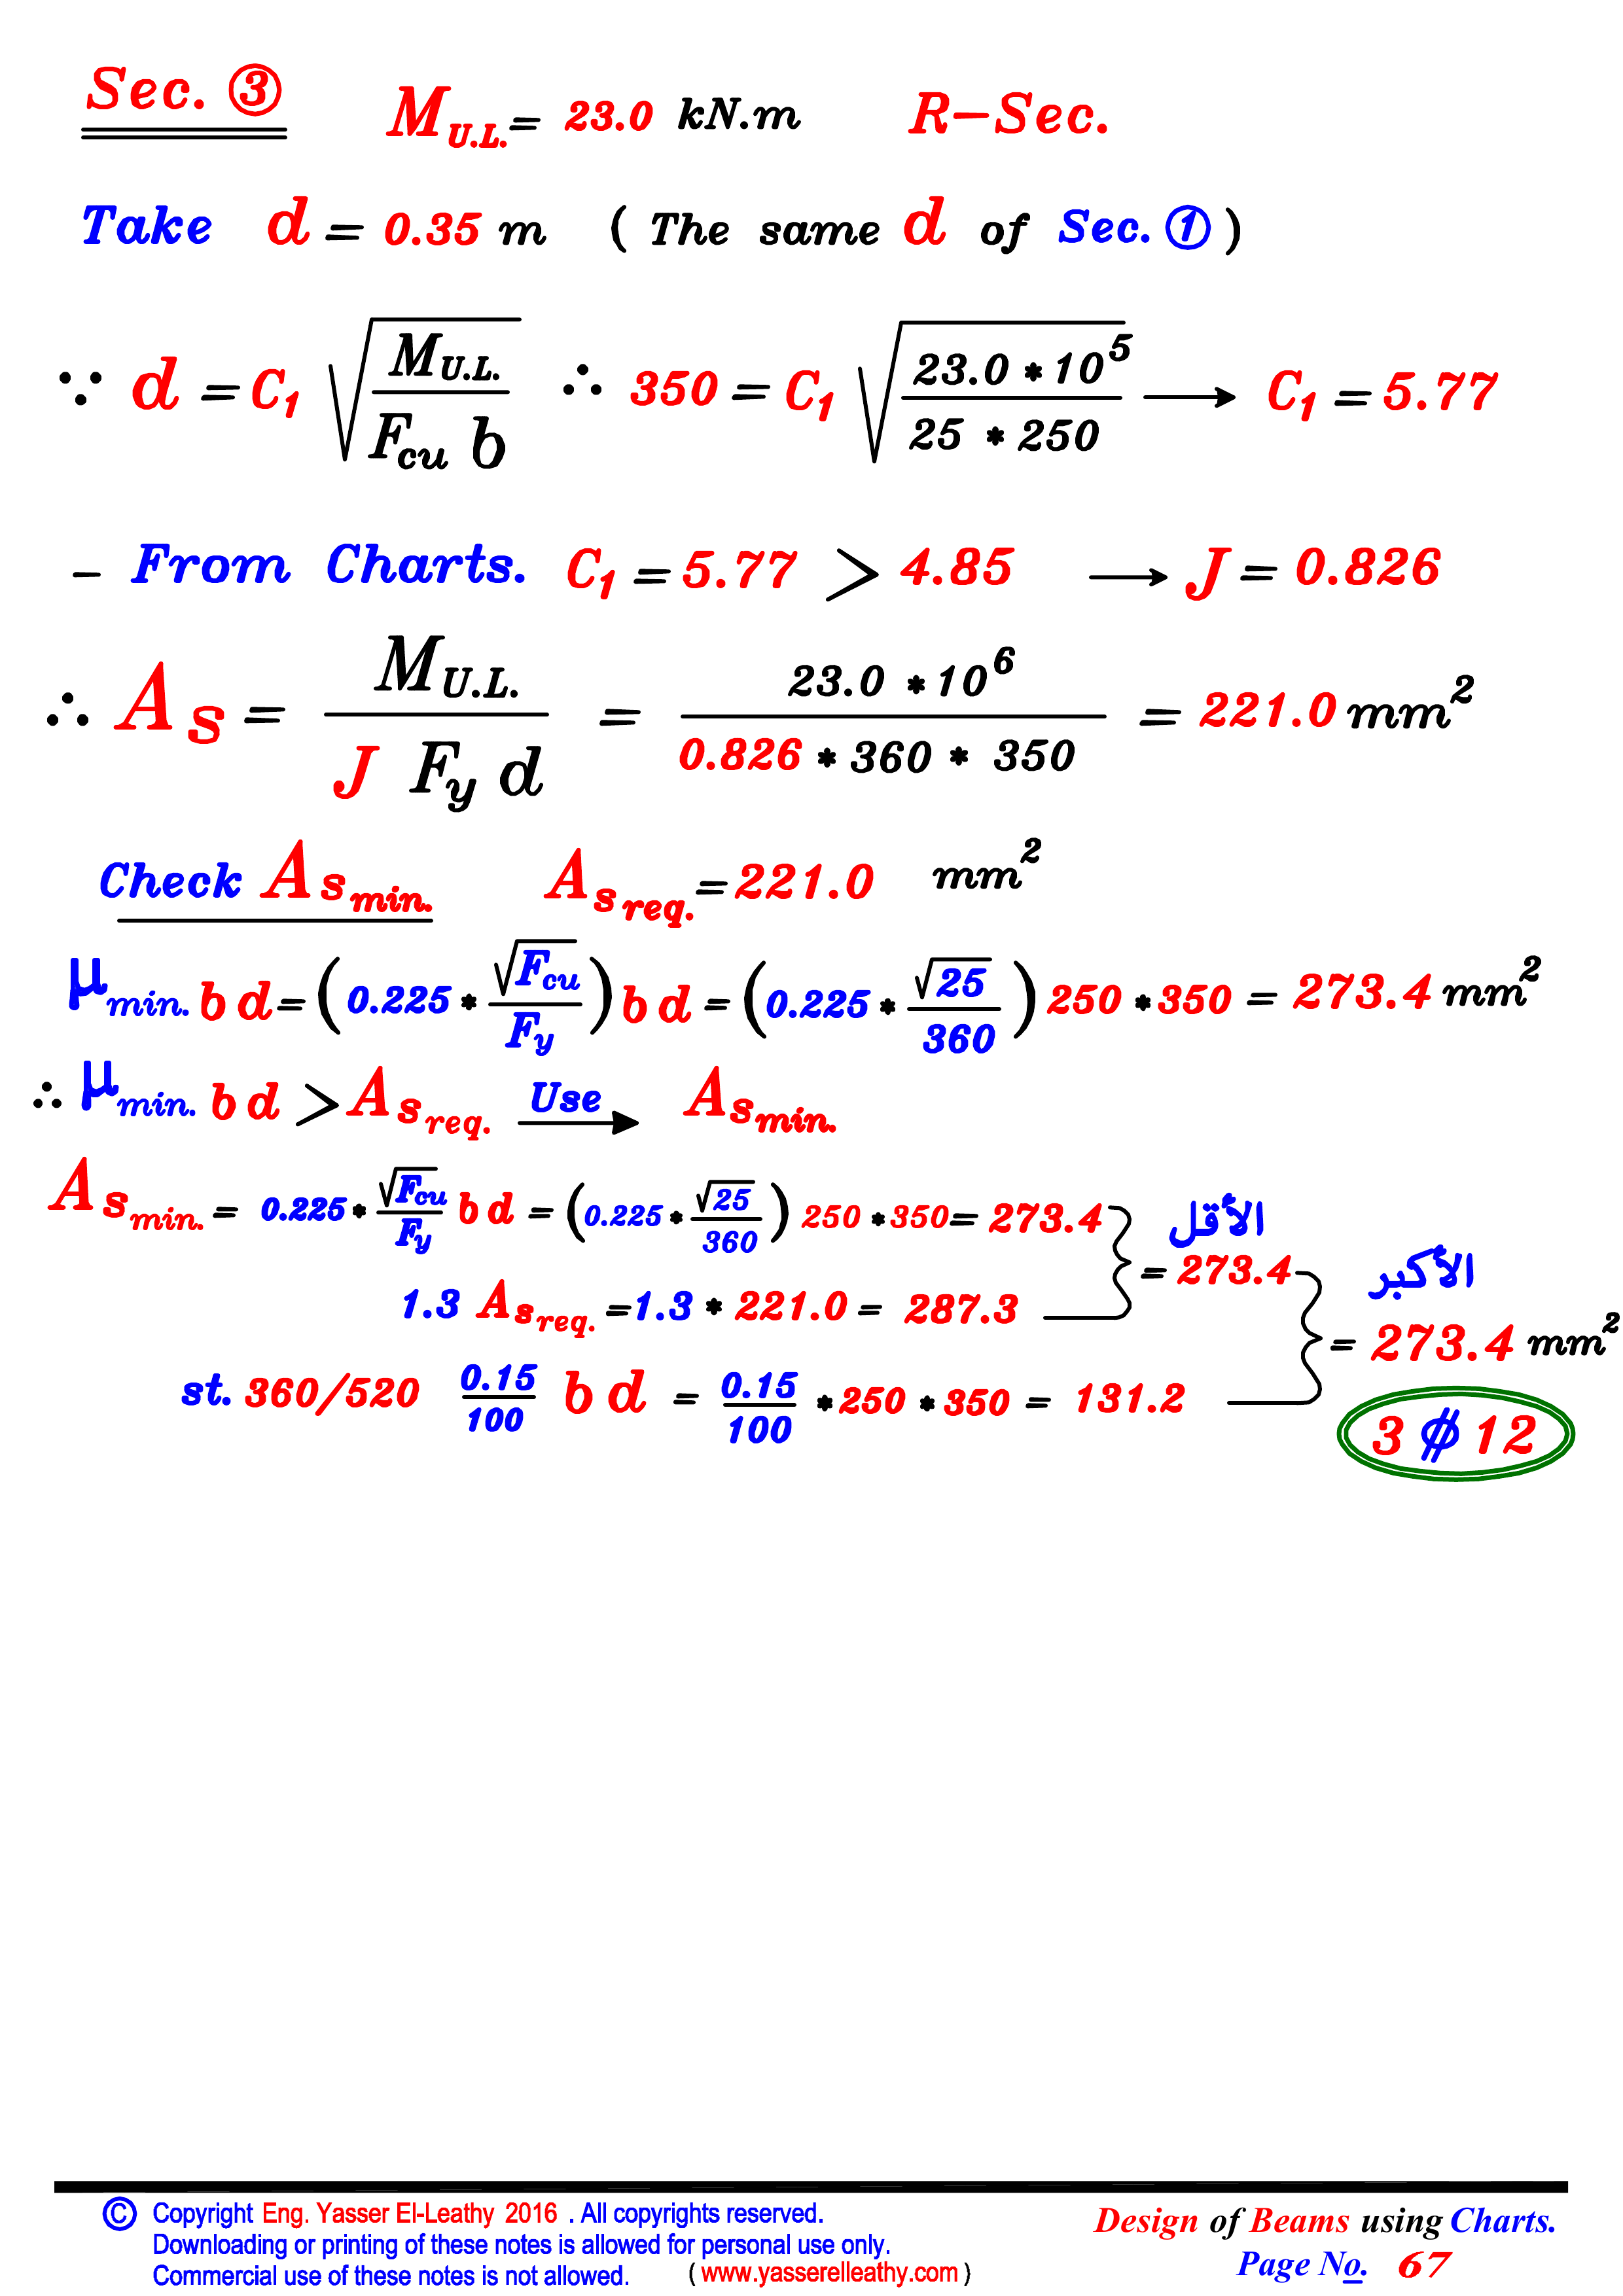 Sec. ③ M U.L. = 23.0 kN.m R-Sec.
Take d = 0.35 m ( The same d of Sec. ① )
∵ d = C1 √(M U.L. / Fcu b) ∴ 350 = C1 √(23.0 * 10^5 / 25 * 250) → C1 = 5.77
- From Charts. C1 = 5.77 > 4.85 → J = 0.826
∴ As = M U.L. / J Fy d = 23.0 * 10^6 / 0.826 * 360 * 350 = 221.0 mm²
Check As min. As req. = 221.0 mm²
μ min. b d = (0.225 * √Fcu / Fy) b d = (0.225 * √25 / 360) 250 * 350 = 273.4 mm²
∴ μ min. b d > As req. Use → As min.
As min. = 0.225 * √Fcu / Fy b d = (0.225 * √25 / 360) 250 * 350 = 273.4 الأقل = 273.4 الأكبر
1.3 As req. = 1.3 * 221.0 = 287.3
= 273.4 mm²
st. 360/520 0.15/100 b d = 0.15/100 * 250 * 350 = 131.2
3 ⌀ 12
© Copyright Eng. Yasser El-Leathy 2016 . All copyrights reserved.
Downloading or printing of these notes is allowed for personal use only.
Commercial use of these notes is not allowed. ( www.yasserelleathy.com )
Design of Beams using Charts.
Page No. 67